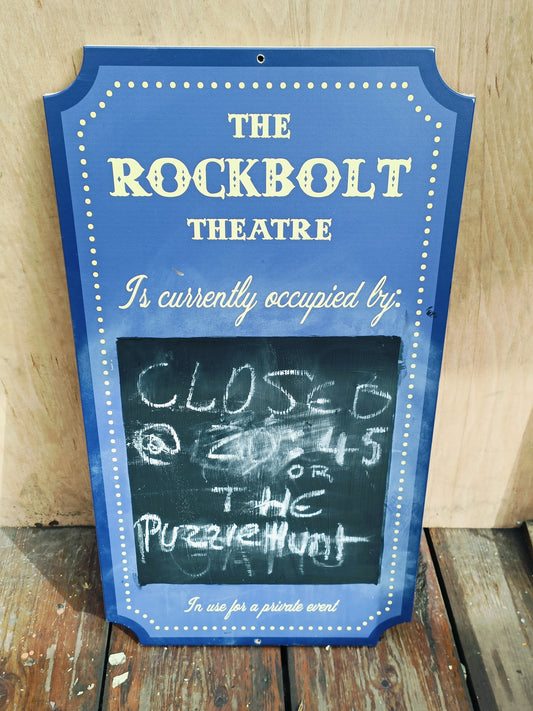 THE
ROCKBOLT
THEATRE
Is currently occupied by:
CLOSED
@ 20:45
OR
THE
PuzzleHunt
In use for a private event